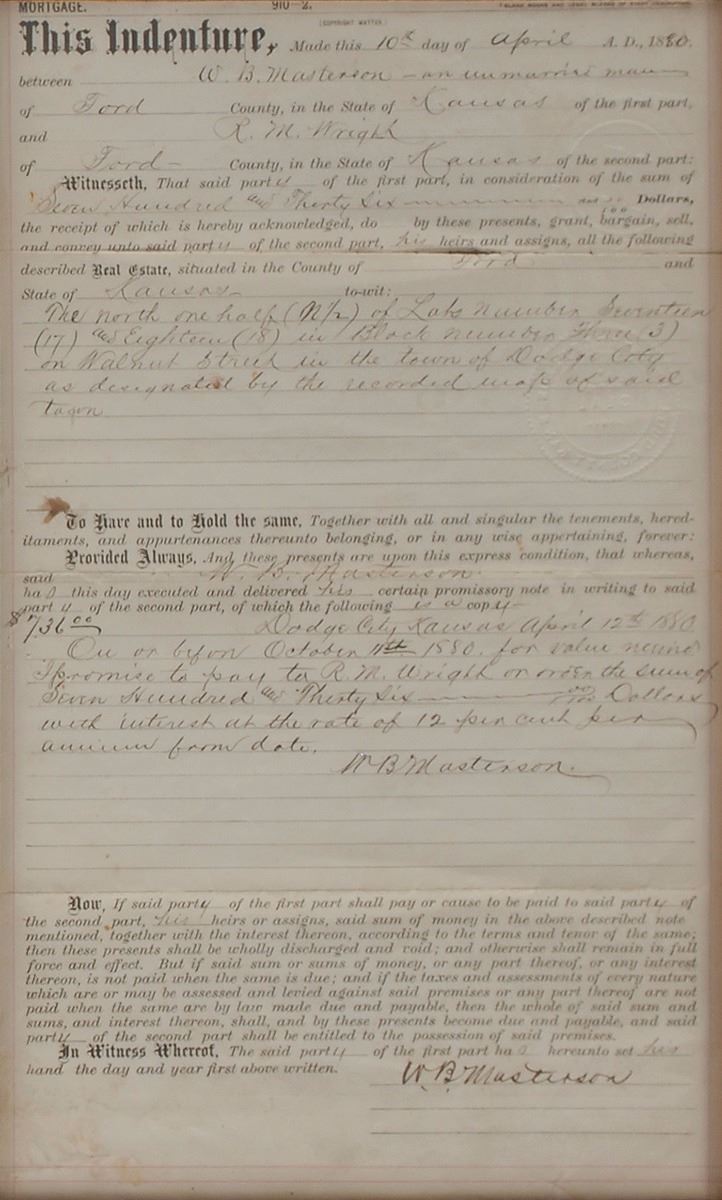 MORTGAGE. 910—2.
(COPYRIGHT MATTER.)
This Indenture, Made this 10th day of April A. D., 1880.
between W. B. Masterson – an unmarried man
of Ford County, in the State of Kansas of the first part,
and R. M. Wright
of Ford County, in the State of Kansas of the second part:
Witnesseth, That said party of the first part, in consideration of the sum of
Seven Hundred and Thirty Six Dollars,
the receipt of which is hereby acknowledged, do by these presents, grant, bargain, sell,
and convey unto said party of the second part, his heirs and assigns, all the following
described Real Estate, situated in the County of Ford and
State of Kansas to-wit:
The north one half (N/2) of Lots number Seventeen
(17) and Eighteen (18) in Block number Three (3)
on Walnut Street in the town of Dodge City
as designated by the recorded map of said
town
To Have and to Hold the same, Together with all and singular the tenements, hered-
itaments, and appurtenances thereunto belonging, or in any wise appertaining, forever:
Provided Always, And these presents are upon this express condition, that whereas,
said W. B. Masterson
has this day executed and delivered his certain promissory note in writing to said
party of the second part, of which the following is a copy
$736 00 Dodge City Kansas April 12th 1880
On or before October 11th 1880. for value
I promise to pay to R. M. Wright or order the sum of
Seven Hundred and Thirty Six 00/100 Dollars
with interest at the rate of 12 per cent per
annum from date.
W B Masterson.
Now, If said party of the first part shall pay or cause to be paid to said party of
the second part, his heirs or assigns, said sum of money in the above described note
mentioned, together with the interest thereon, according to the terms and tenor of the same;
then these presents shall be wholly discharged and void; and otherwise shall remain in full
force and effect. But if said sum or sums of money, or any part thereof, or any interest
thereon, is not paid when the same is due; and if the taxes and assessments of every nature
which are or may be assessed and levied against said premises or any part thereof are not
paid when the same are by law made due and payable, then the whole of said sum and
sums, and interest thereon, shall, and by these presents become due and payable, and said
party of the second part shall be entitled to the possession of said premises.
In Witness Whereof, The said party of the first part has hereunto set his
hand the day and year first above written.
W. B. Masterson